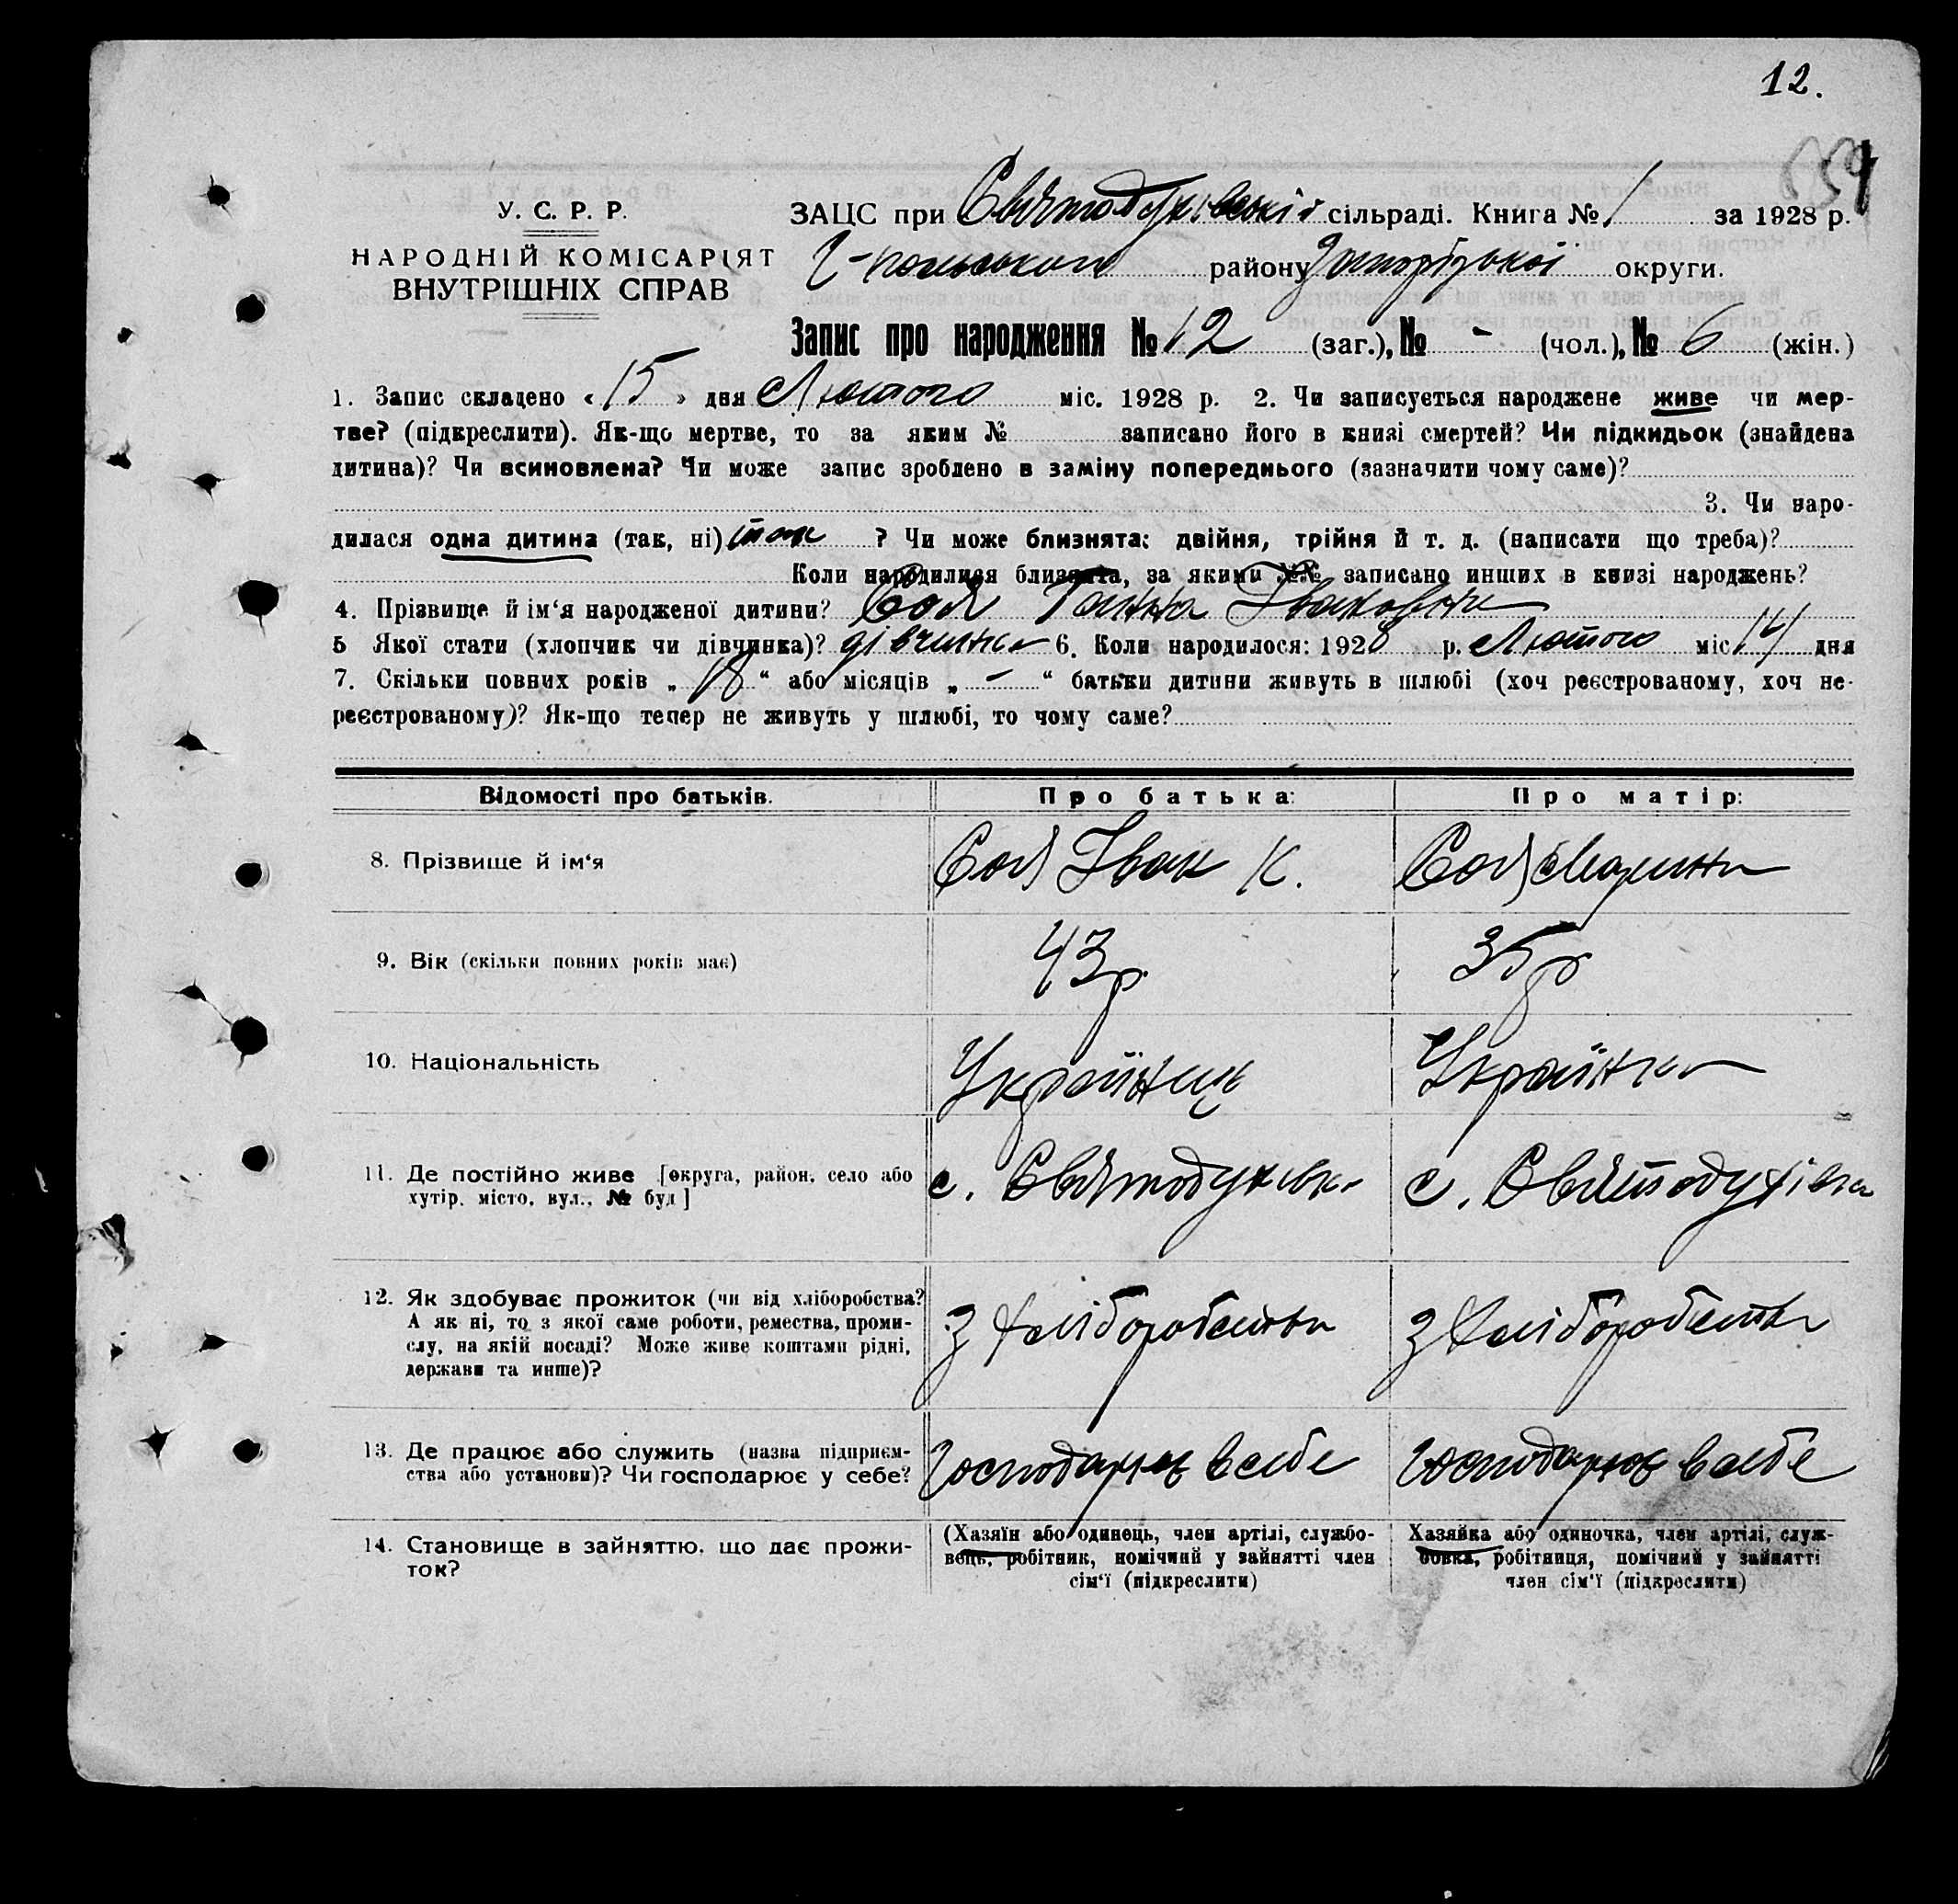 12.
У. С. Р. Р.
НАРОДНІЙ КОМІСАРІЯТ
ВНУТРІШНІХ СПРАВ
ЗАЦС при Святодухівській сільраді. Книга № 1 за 1928 р.
Г-польського району Запорізької округи.
Запис про народження № 12 (заг.), № - (чол.), № 6 (жін.)
1. Запис складено « 15 » дня Лютого міс. 1928 р. 2. Чи записується народжене живе чи мер-
тве? (підкреслити). Як-що мертве, то за яким № записано його в книзі смертей? Чи підкидьок (знайдена
дитина)? Чи всиновлена? Чи може запис зроблено в заміну попереднього (зазначити чому саме)?
3. Чи наро-
дилася одна дитина (так, ні) так ? Чи може близнята: двійня, трійня й т. д. (написати що треба)?
Коли народилися близнята, за якими №№ записано инших в книзі народжень?
4. Прізвище й ім‘я народженої дитини? Соя Ганна Івановна
5 Якої стати (хлопчик чи дівчинка)? дівчинка 6. Коли народилося: 1928 р. Лютого міс 14 дня
7. Скільки повних років „ 18 “ або місяців „ - “ батьки дитини живуть в шлюбі (хоч реєстрованому, хоч не-
реєстрованому)? Як-що тепер не живуть у шлюбі, то чому саме?
Відомості про батьків. Про батька: Про матір:
8. Прізвище й ім‘я Соя Іван К. Соя Марина
9. Вік (скільки повних років має) 43 р 35 р
10. Національність Українець Українка
11. Де постійно живе [округа, район, село або с. Святодухівка с. Святодухівка
хутір, місто, вул., № буд]
12. Як здобуває прожиток (чи від хліборобства? З хліборобства З хліборобства
А як ні, то з якої саме роботи, ремества, проми-
слу, на якій посаді? Може живе коштами рідні,
держави та инше)?
13. Де працює або служить (назва підприєм- Господарює в себе Господарює в себе
ства або установи)? Чи господарює у себе?
14. Становище в зайняттю, що дає прожи- (Хазяїн або одинець, член артілі, службо- Хазяйка або одиночка, член артілі, служ-
ток? вець, робітник, помічний у зайнятті член бовка, робітниця, помічний у зайнятті
сім‘ї (підкреслити) член сім‘ї (підкреслити)